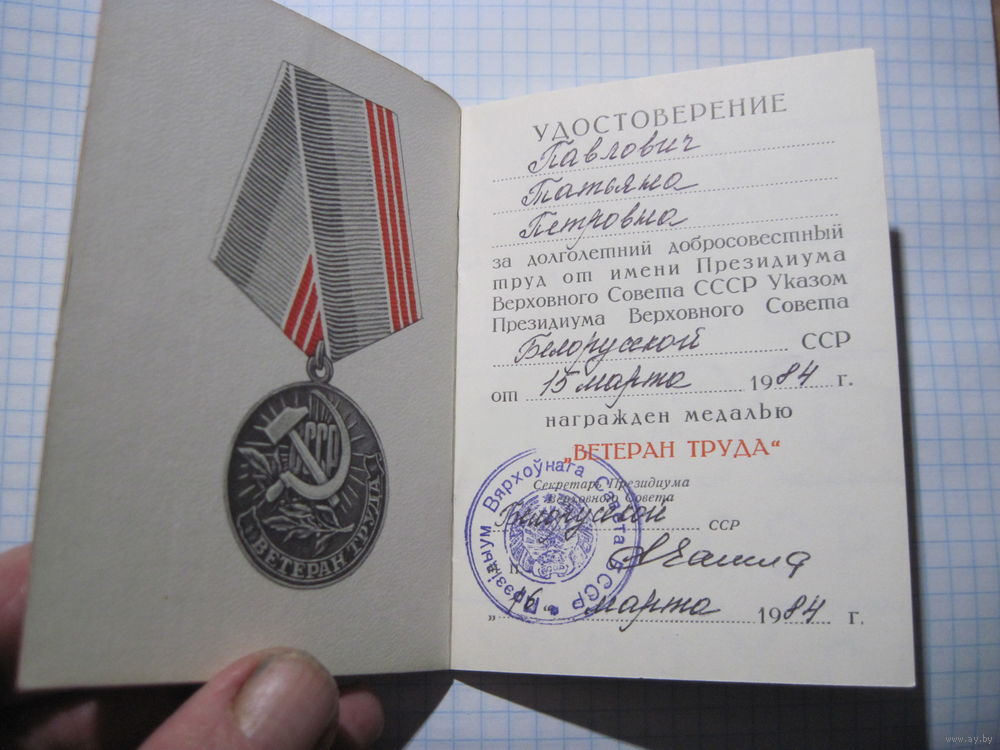 СССР
ВЕТЕРАН ТРУДА
УДОСТОВЕРЕНИЕ
Павлович
Татьяна
Петровна
за долголетний добросовестный
труд от имени Президиума
Верховного Совета СССР Указом
Президиума Верховного Совета
Белорусской ССР
от 15 марта 1984 г.
награжден медалью
„ВЕТЕРАН ТРУДА“
Секретарь Президиума
Верховного Совета
Белорусской ССР
Прэзідыум Вярхоўнага Савета БССР
„16“ марта 1984 г.
www.ay.by